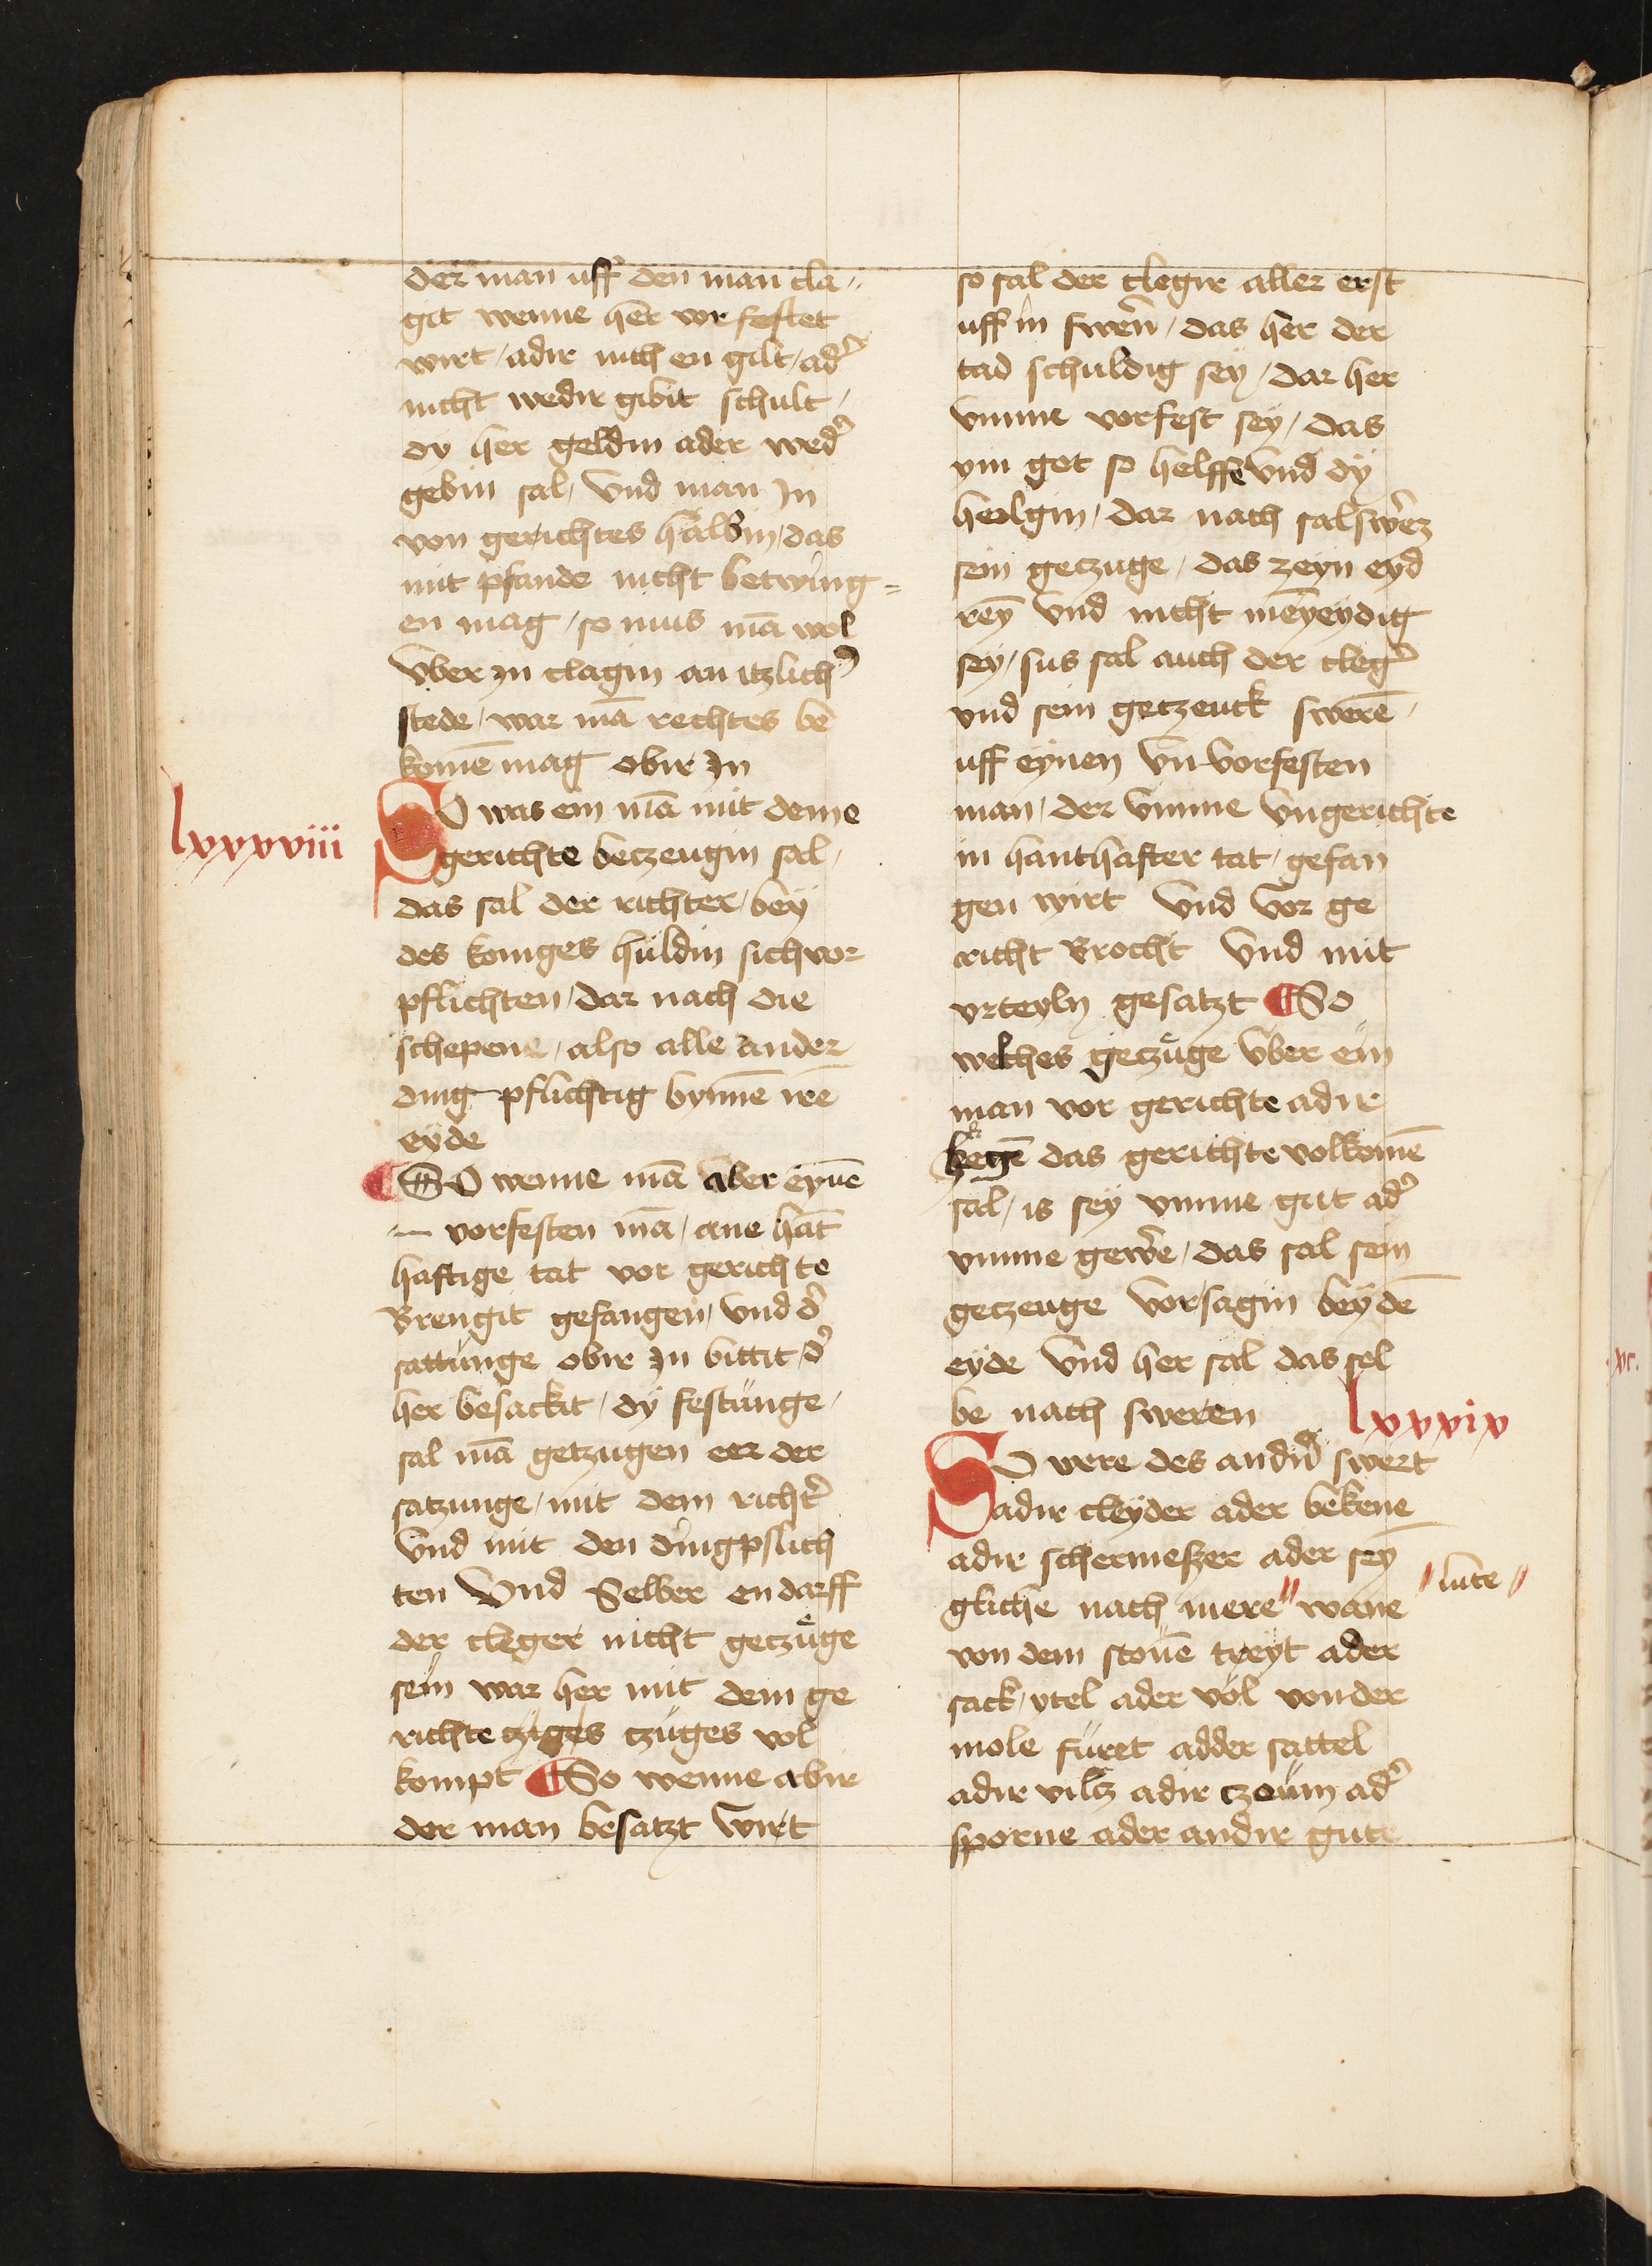 der man uff den man cla„
git wenne her vor festet
wirt / adir nich en gilt / ad᾽
nicht wedir gibit schult /
dy her geldin ader wed᾽
gebin sal / vnd man In
von gerichtes halbin / das
mit pfande nicht betwing=
en mag / so mus mā wol
vber in clagin an itzlich᾽
stede / war mā rechtes be
komē mag obir In
lxxxviii
SO was ein mā mit deme
gerichte betzeugin sal /
das sal der richter / bey
des koniges huldin sich vor
pflichten / dar nach die
schepene / also alle ander
ding pflichtig bynnē irē
eyde
¶ SO wenne mā aber eynē
— vorfesten mā / ane hāt
haftige tat vor gerichte
Brengit gefangen / vnd d᾽
sattunge obir in bittit / d᾽
her besackit / dy festunge /
sal mā getzugen eer der
satzunge / mit dem richt᾽
vnd mit den dingpflich
ten Vnd Selber en darff
der cleger nicht getzůge
sein war her mit dem ge
richte tzuges czuges vol
kompt ¶ So wenne abir
der man besatzt wirt
so sal der clegir aller erst
uff in swern / das her der
tad schuldig sey / dar her
vmme vorfest sey / das
ym got so helffe vnd dy
heolgin / dar nach sal swerz
sein getzuge / das zeyn eyd
rey̅ vnd nicht mēyeydig
sey / sus sal auch der cleg᾽
vnd sein getzeuck swerē /
uff eynen vn vorfesten
man / der vmme vngerichte
in hanthafter tat / gefan
gen wirt vnd vor ge
richt Brocht vnd mit
vrteyln gesatzt ¶ So
welches getzůge vber ein
man vor gerichte adir
kegē das gerichte volkomē
sal / is sey vmme gut ad᾽
vmme gewere / das sal sein
getzeuge vorsagin bey dē
eyde vnd her sal das sel
be nach sweren
lxxxix
SO were des andirn swert
adir cleyder ader bekene
adir schermeszer ader sey̅
gliche nach mere" wane
"lute"
von dem stouē treyt ader
sack / ytel ader vol von der
mole furet adder sattel
adir vilz adir czoum ad᾽
sporne ader andir gute